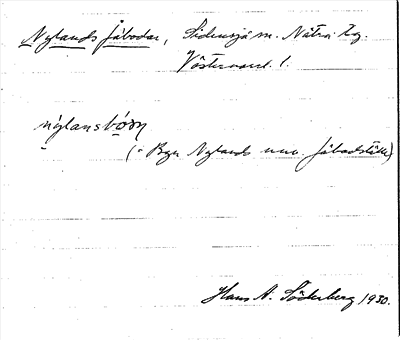 Nylands fäbodar, Sidensjö sn. Nätra tg.
Västernorrl. l.
nýlansbo̱ðn
(= Byn Nylands nuv. fäbodställe)
Hans A. Söderberg 1930.